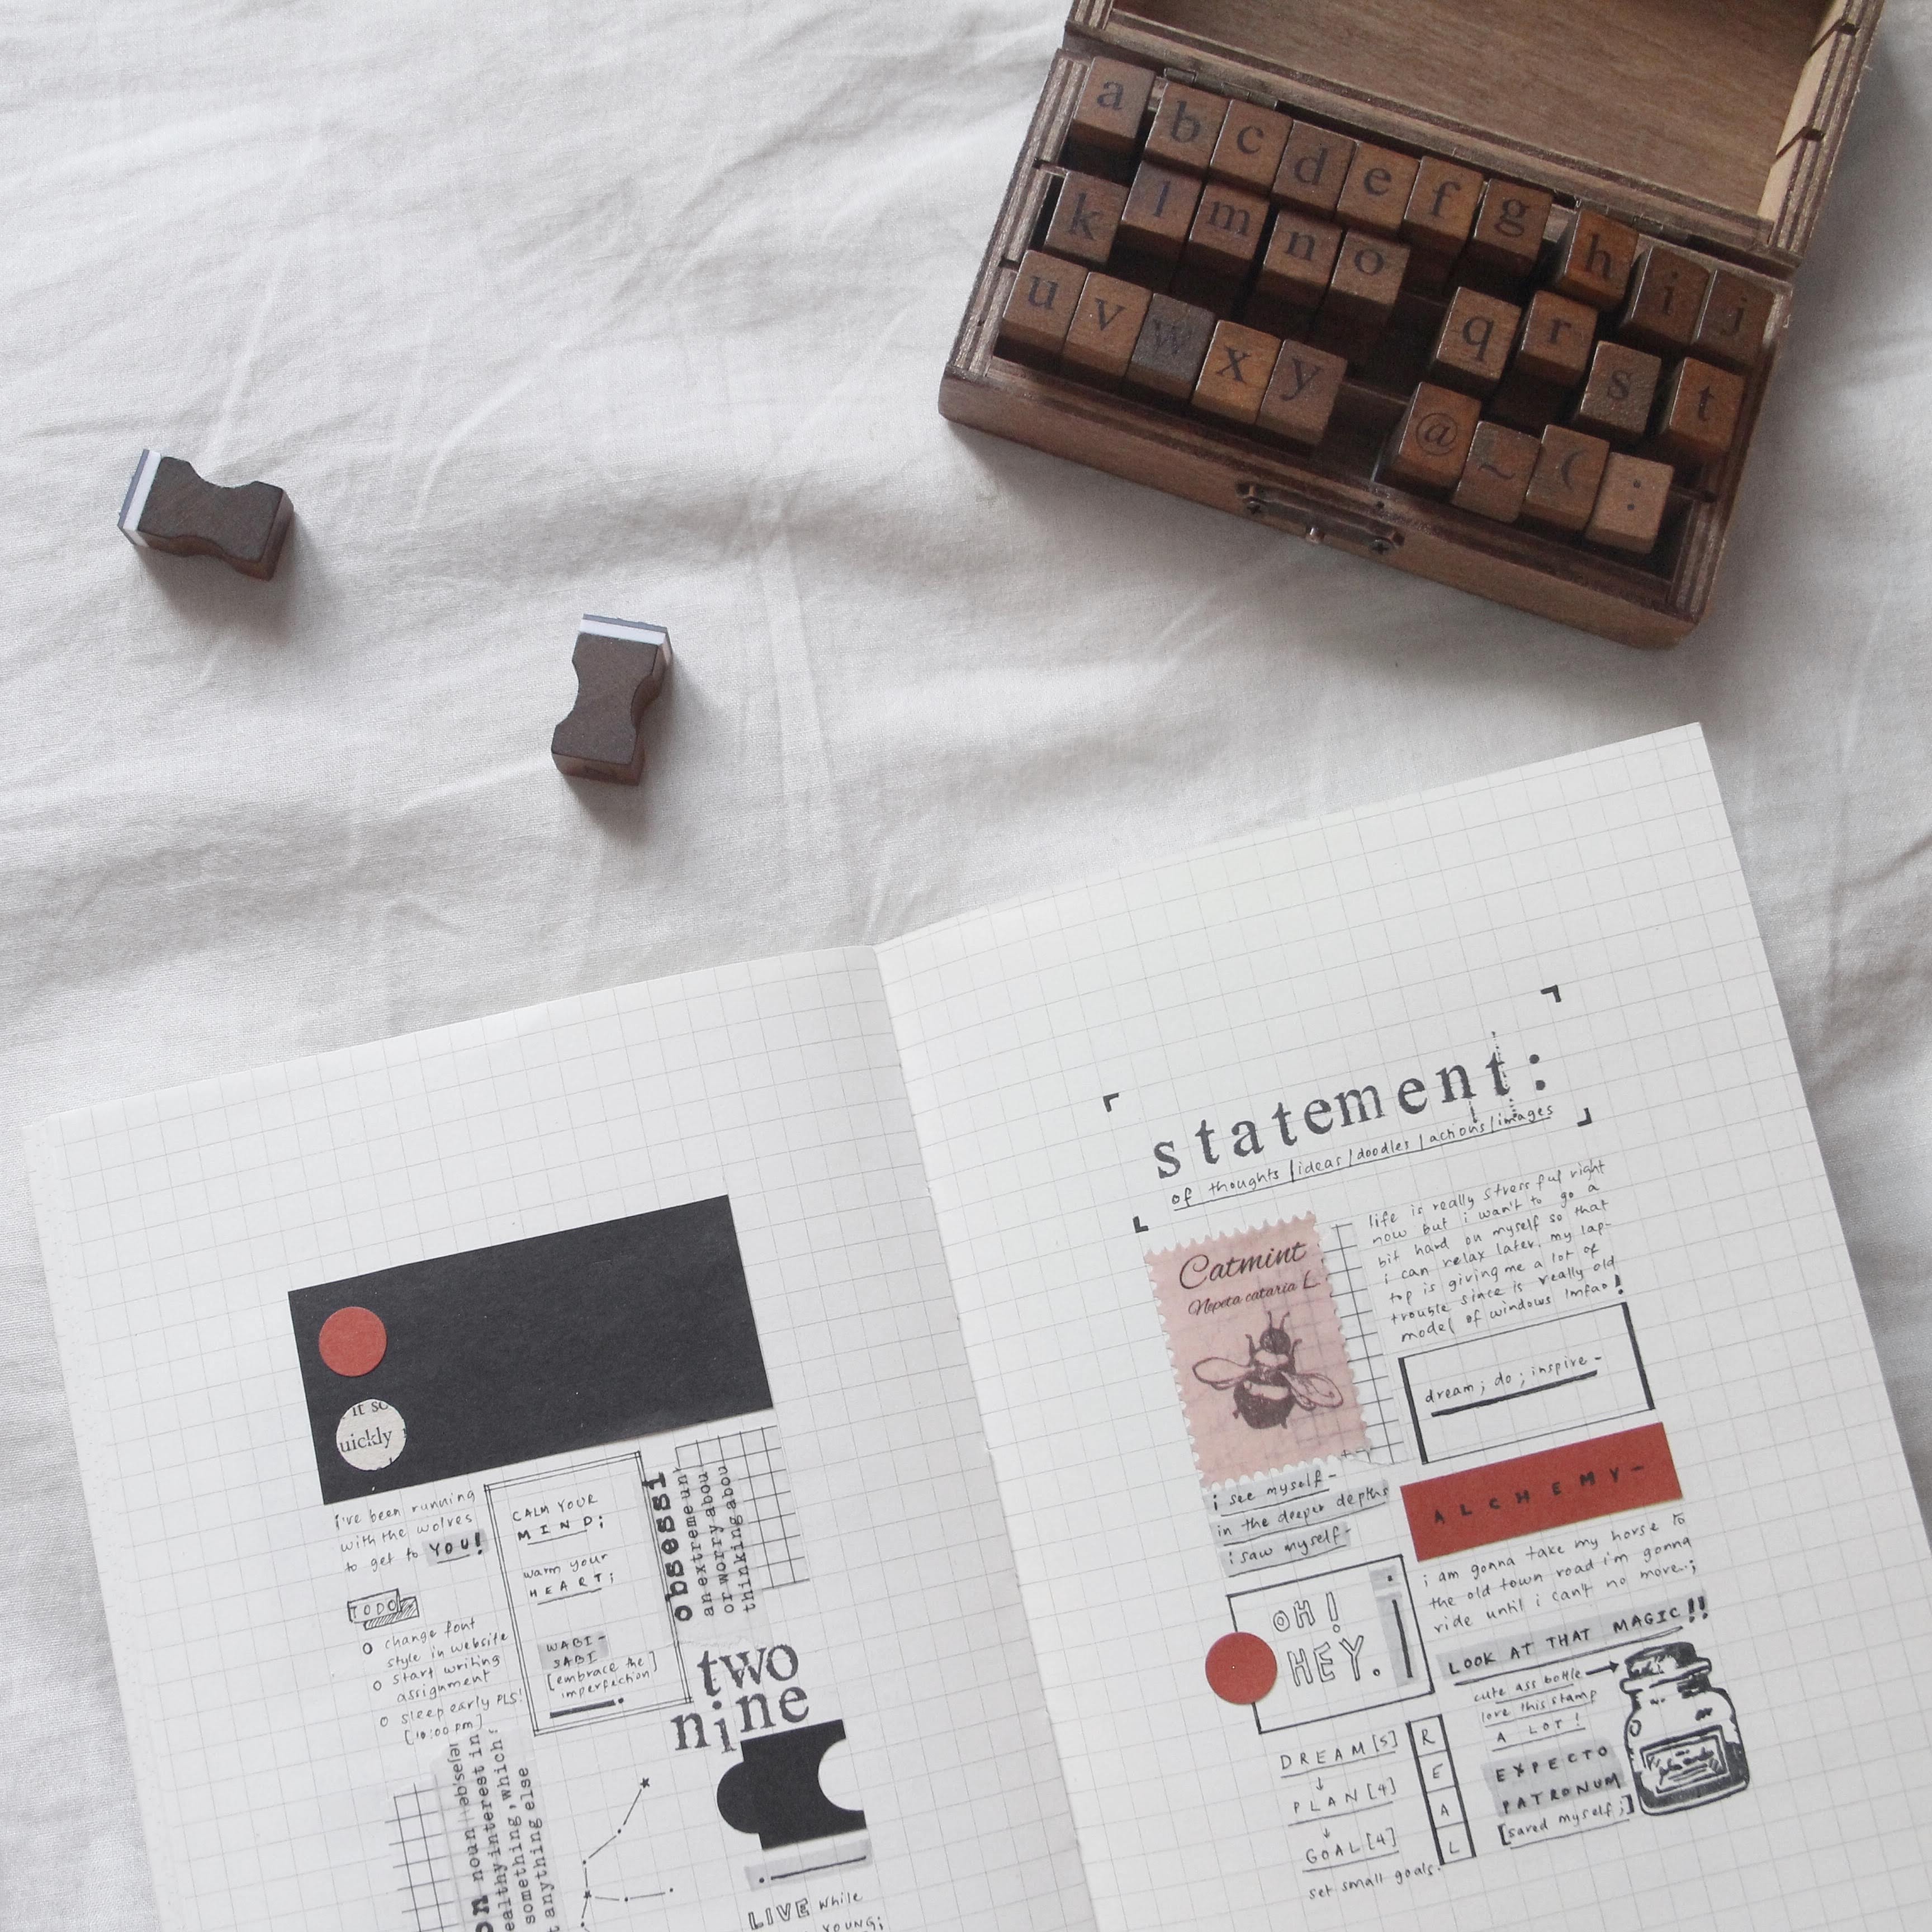 a b c d e f g h i j
k l m n o q r s t
u v w x y @ ~ ( :
it so
uickly
i've been running
with the wolves
to get to YOU!
TODO
change font
style in website
start writing
assignment
sleep early PLS!
[10:00 pm]
CALM YOUR
MIND;
warm your
HEART;
WABI-
SABI
[embrace the
imperfection]
obsessi
an extreme un
or worry abou
thinking abou
two
nine
on noun |əb'seʃə|
ealthy interest in
something, which
t anything else
LIVE while
YOUNG;
statement:
of thoughts/ideas/doodles/actions/images
Catmint
Nepeta cataria L.
life is really stressful right
now but i want to go a
bit hard on myself so that
i can relax later. my lap-
top is giving me a lot of
trouble since is really old
model of windows lmfao!
dream; do; inspire-
ALCHEMY-
i see myself-
in the deeper depths
i saw myself-
OH!
HEY.
i am gonna take my horse to
the old town road i'm gonna
ride until i can't no more..;
LOOK AT THAT MAGIC!!
cute ass bottle
love this stamp
A LOT!
EXPECTO
PATRONUM
[saved myself;]
DREAM[5]
PLAN[4]
GOAL[4]
set small goals.
R
E
A
L